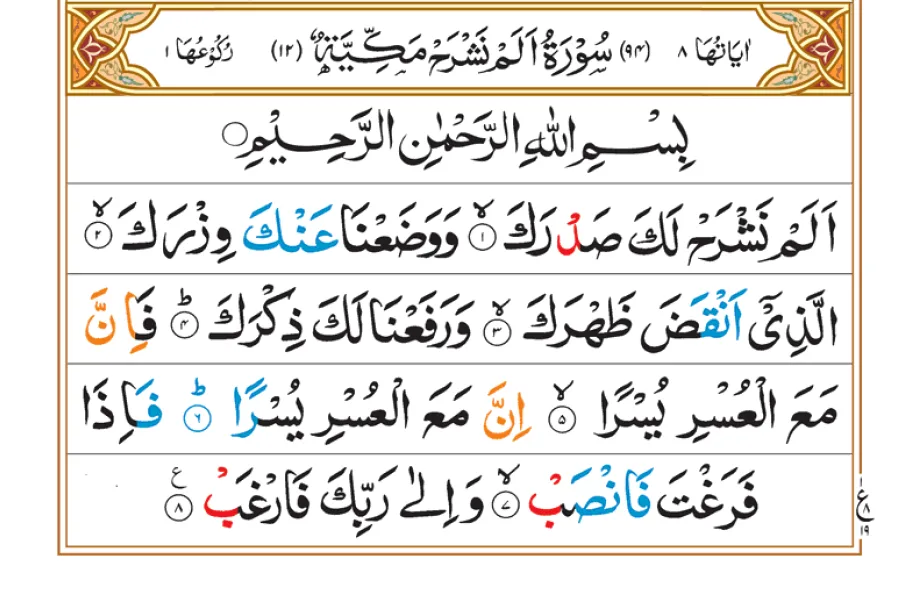 اٰیَاتُهَا ۸ (۹۴) سُوْرَةُ اَلَمْ نَشْرَحْ مَكِّیَّةٌ (۱۲) رُكُوْعُهَا ۱
بِسْمِ اللهِ الرَّحْمٰنِ الرَّحِیْمِ ○
اَلَمْ نَشْرَحْ لَكَ صَدْرَكَ ۙ﴿۱﴾ وَوَضَعْنَا عَنْكَ وِزْرَكَ ۙ﴿۲﴾
الَّذِیْۤ اَنْقَضَ ظَهْرَكَ ۙ﴿۳﴾ وَرَفَعْنَا لَكَ ذِكْرَكَ ؕ﴿۴﴾ فَاِنَّ
مَعَ الْعُسْرِ یُسْرًا ۙ﴿۵﴾ اِنَّ مَعَ الْعُسْرِ یُسْرًا ؕ﴿۶﴾ فَاِذَا
فَرَغْتَ فَانْصَبْ ۙ﴿۷﴾ وَ اِلٰی رَبِّكَ فَارْغَبْ ﴿۸﴾ ع
ع ۸ ۱۹